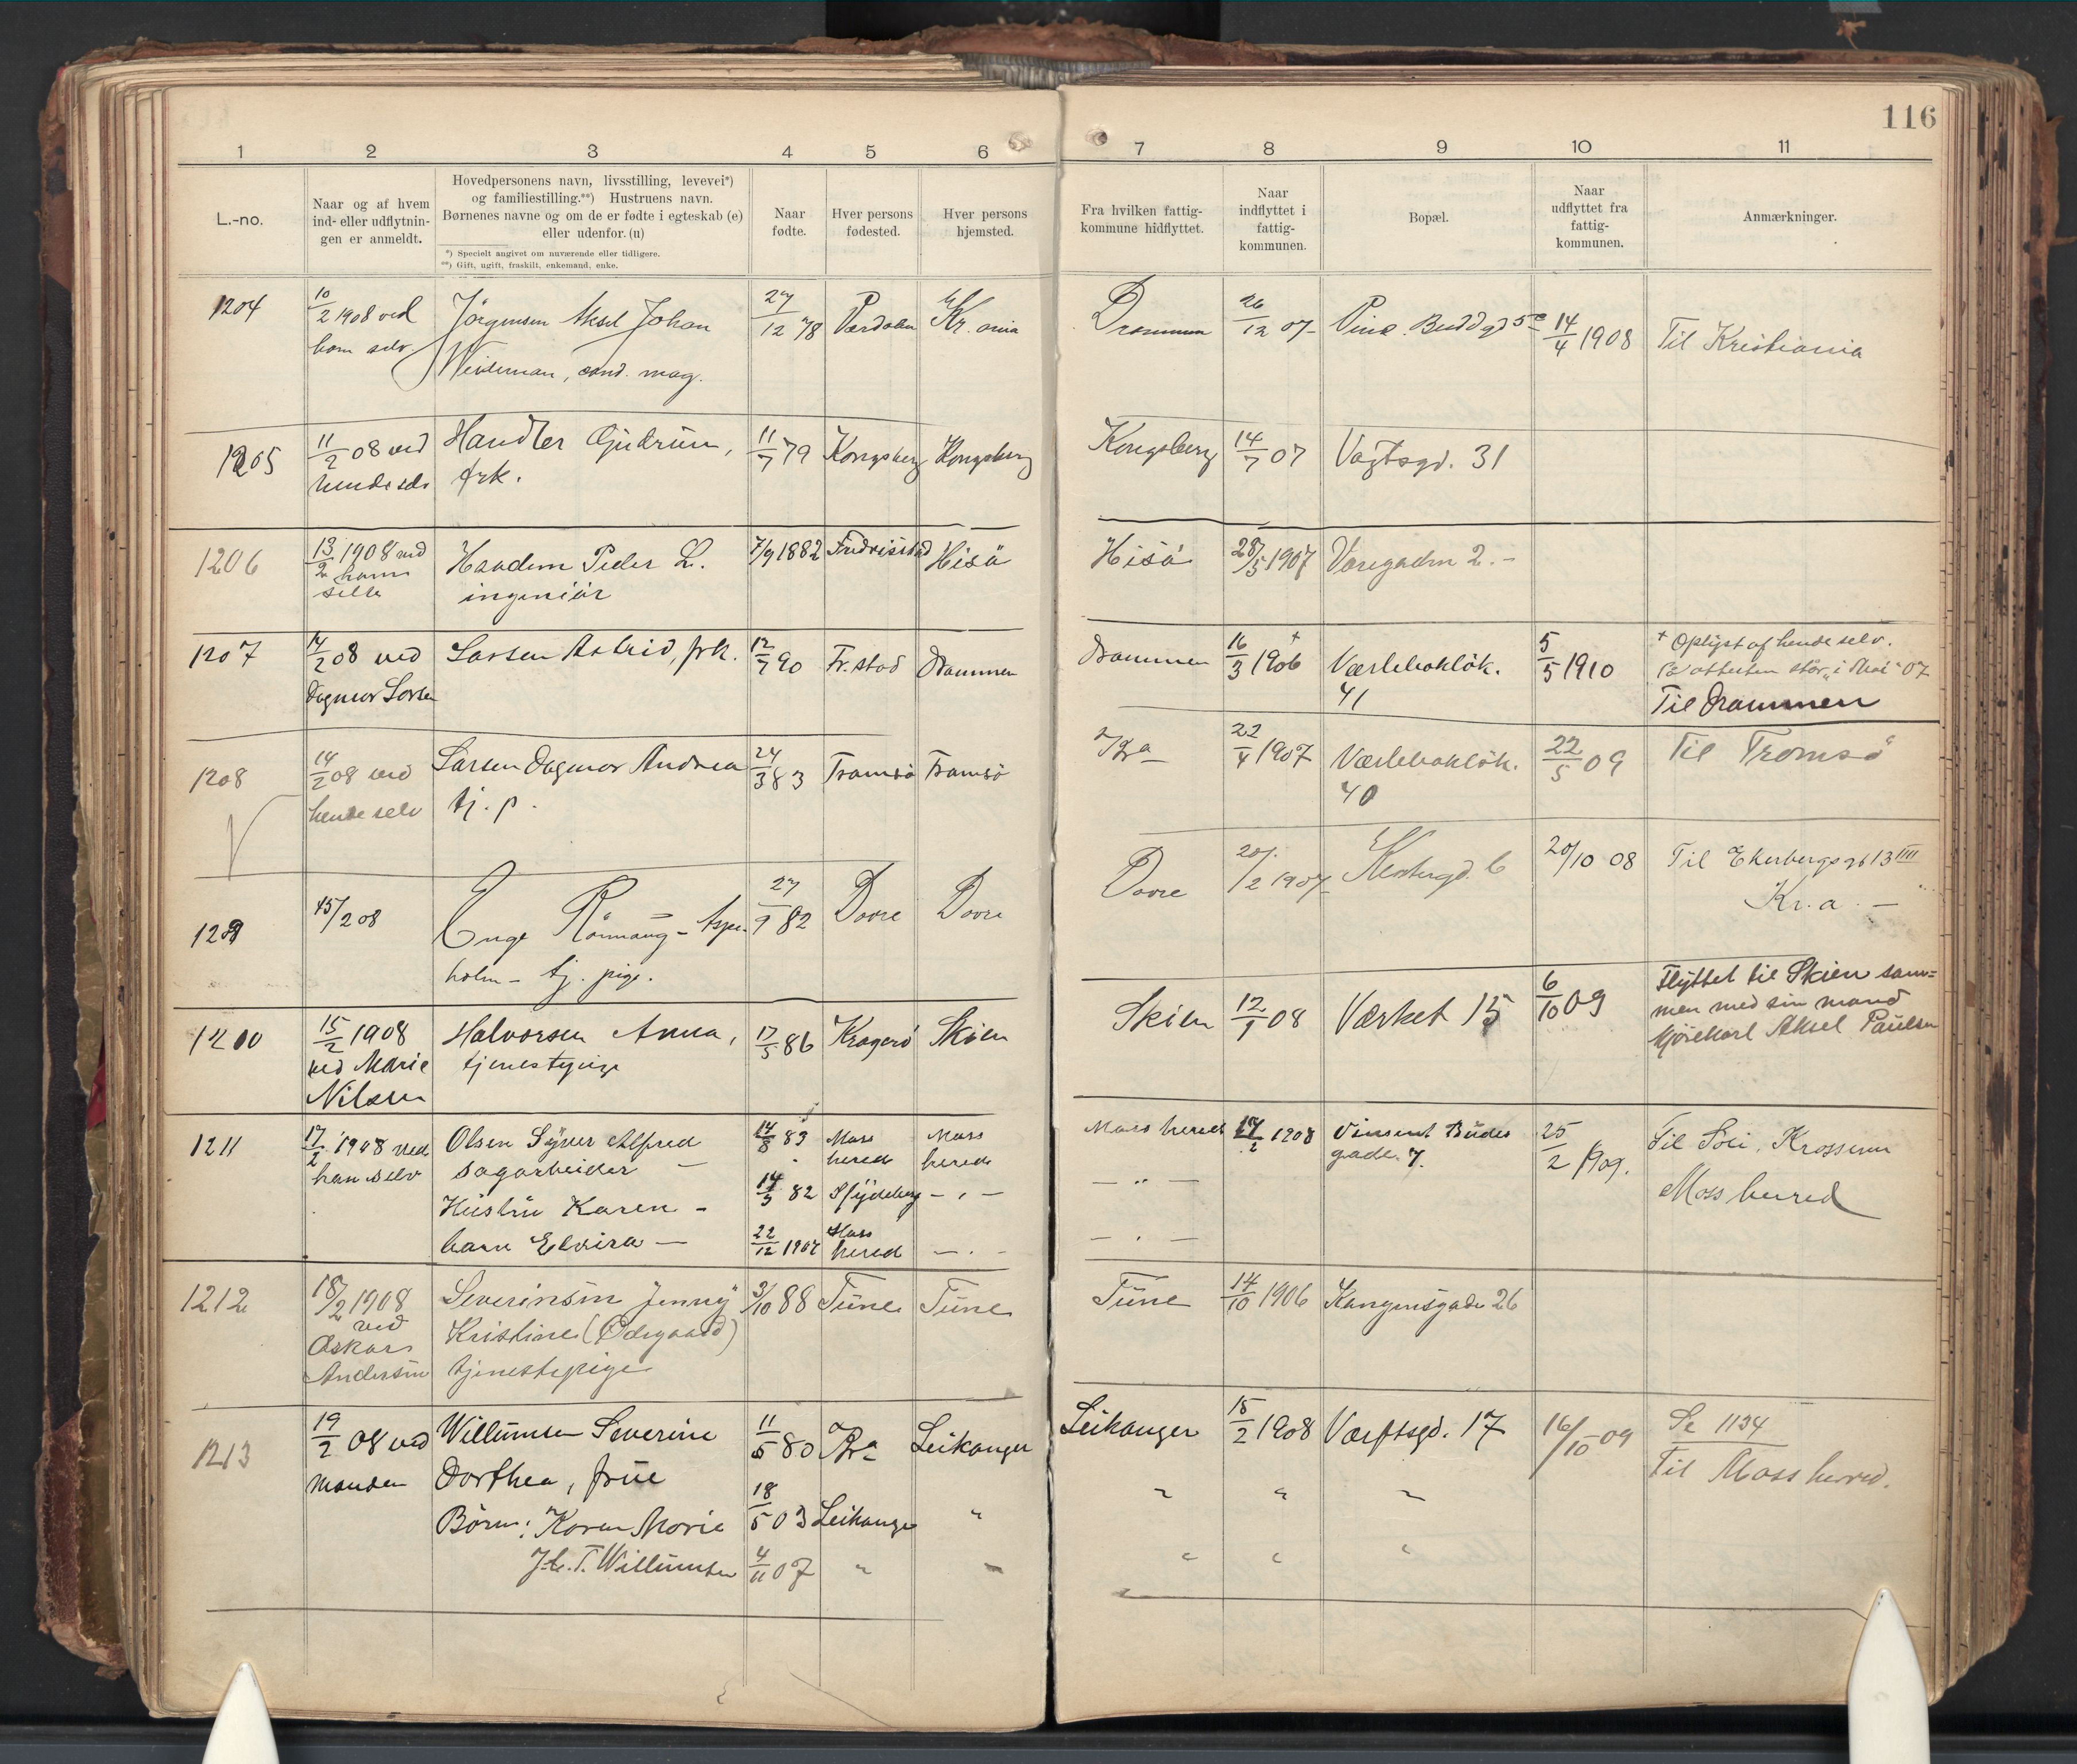 116
1 2 3 4 5 6 7 8 9 10 11
L.-no.
Naar og af hvem
ind- eller udflytnin-
gen er anmeldt.
Hovedpersonens navn, livsstilling, levevei*)
og familiestilling.**) Hustruens navn.
Børnenes navne og om de er fødte i egteskab (e)
eller udenfor. (u)
*) Specielt angivet om nuværende eller tidligere.
**) Gift, ugift, fraskilt, enkemand, enke.
Naar
fødte.
Hver persons
fødested.
Hver persons
hjemsted.
Fra hvilken fattig-
kommune hidflyttet.
Naar
indflyttet i
fattig-
kommunen.
Bopæl.
Naar
udflyttet fra
fattig-
kommunen.
Anmærkninger.
1204 10/2 1908 ved Jörgensen Aksel Johan 27/12 78 Værdalen Kr.ania Drammen 26/12 07 14/4 1908 Til Kristiania
ham selv Weideman, cand. mag.
1205 11/2 08 ved Handler Gudrun, 11/7 79 Kongsberg Kongsberg Kongsberg 14/7 07 Vogtsgd. 31
hende selv frk.
1206 13/2 1908 ved Haadem Peder L. 7/9 1882 Fredrisstad Hisö Hisö 28/5 1907 Varegaden 2.-
ham
selv ingeniör
1207 14/2 08 ved Larsen Astrid, frk. 12/7 90 Fr.stad Drammen Drammen 16/3 1906 + Værlebakløk. 5/5 1910 + Oplyst af hende selv.
Dagmar Larsen 41 På attesten står "i Mai" 07
Til Drammen
1208 14/2 08 ved Larsen Dagmar Andrea 24/3 83 Tromsö Tromsö Kra 22/4 1907 Værlebakløk. 22/5 09 Til Tromsö
hende selv tj. p. 40
1209 15/2 08 Enge Rönnaug - Aspe- 27/9 82 Dovre Dovre Dovre 20/2 1907 6 20/10 08 Til Ekerbergsgt 13 IIII
holm - tj. pige. Kr.a. -
1200 15/2 1908 Halvorsen Anna, 17/5 86 Kragerö Skien Skien 12/1 08 Værket 15 6/10 09 Flyttet til Skien sam=
ved Marie tjenestepige men med sin mand
Nilsen kjørekarl Aksel Paulsen
1211 17/2 1908 ved Olsen Syver Alfred 14/8 83 Moss Moss Moss herred 17/2 1908 Vinsent Budes 25/2 1909. Til Soli, Krossern
han selv sagarbeider - herred herred gade 7. Moss herred
Hustru Karen - 14/3 82 Spydeberg - " - - " -
barn Elvira - 22/12 1907 Moss
herred - " - - " -
1212 18/2 1908 Severinsen Jenny 3/10 88 Tune Tune Tune 14/10 1906 Kongensgade 26
ved Kristine (Ødegaard)
Oskar tjenestepige
Andersen
1213 19/2 08 ved Willumsen Severine 11/5 80 Kra Leikanger Leikanger 15/2 1908 Værftsgd. 17 16/10 09 Se 1134
manden Dorthea, frue Til Moss herred.
Børn: Karen Marie 18/5 03 Leikanger " " " "
J. C. T. Willumsen 4/11 07 " " " " "